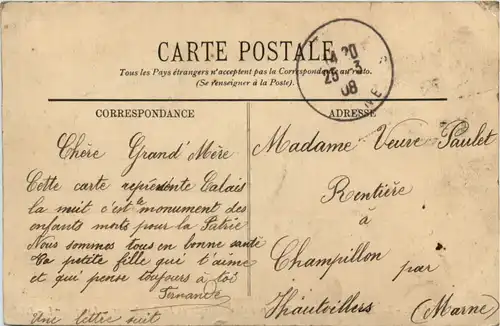 CARTE POSTALE
Tous les Pays étrangers n'acceptent pas la Correspondance au recto.
(Se renseigner à la Poste).
14 20
25-3
08
CORRESPONDANCE
Chère Grand'Mère
Cette carte représente Calais
la nuit c'est le monument des
enfants morts pour la Patrie
Nous sommes tous en bonne santé
Ta petite fille qui t'aime
et qui pense toujours à toi
Fernande
Une lettre suit
ADRESSE
Madame Veuve Paulet
Rentière
à
Champillon par
Hautvillers (Marne)